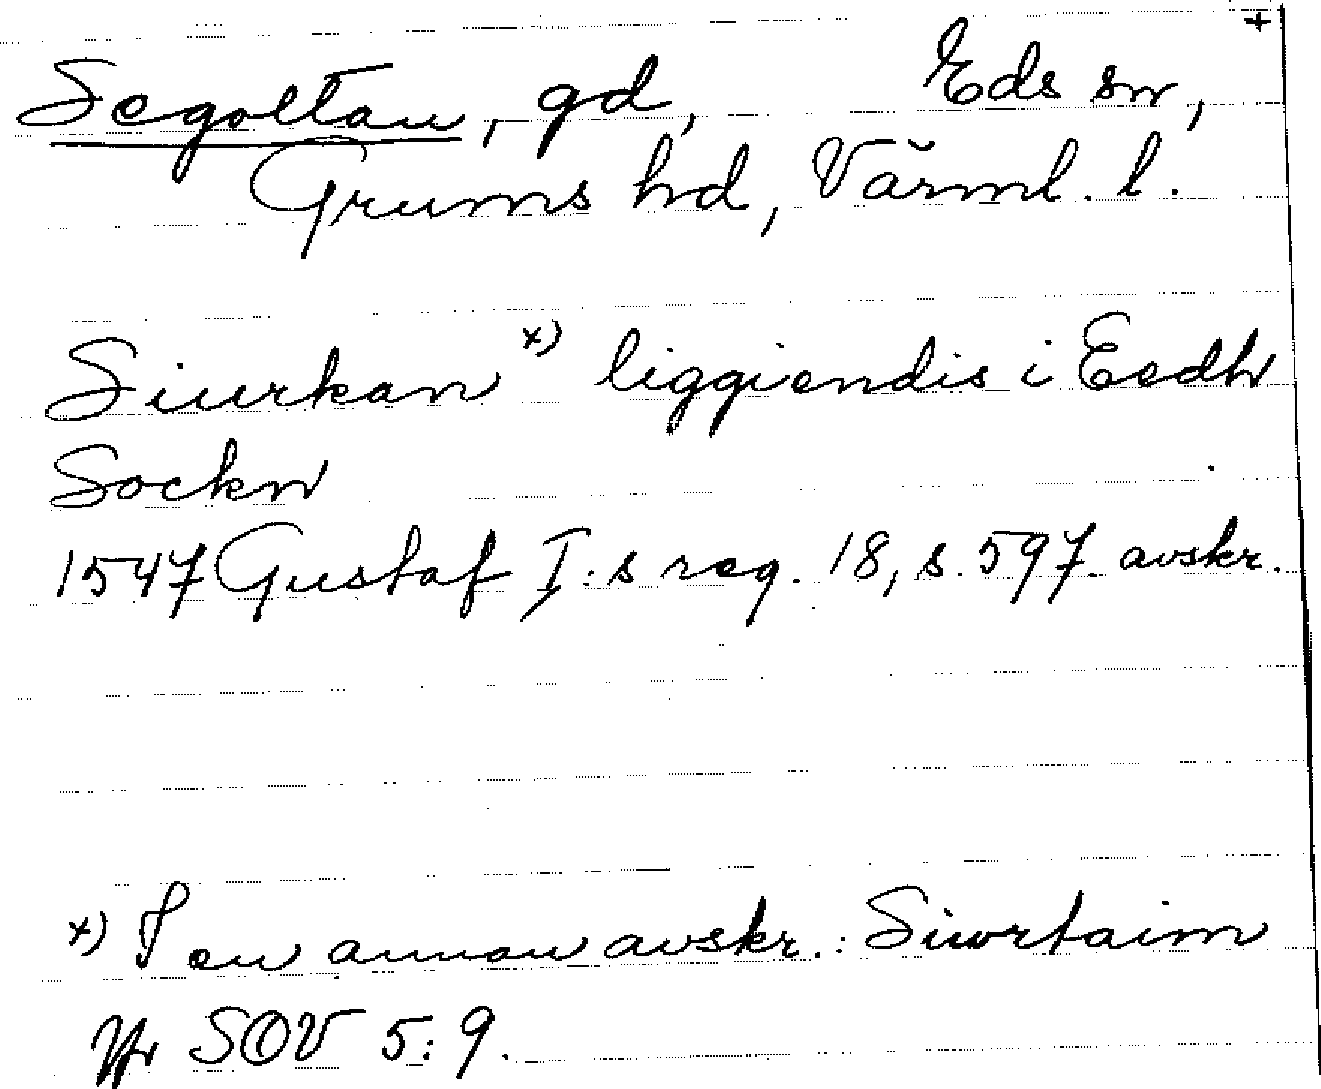 +
Segoltan, gd, Eds sn,
Grums hd, Värml. l.
Siurkan x) liggiendis i Eedh
Sockn
1547 Gustaf I:s reg. 18, s. 597. avskr.
x) I en annan avskr.: Siwrtaim
Jfr SOV 5:9.